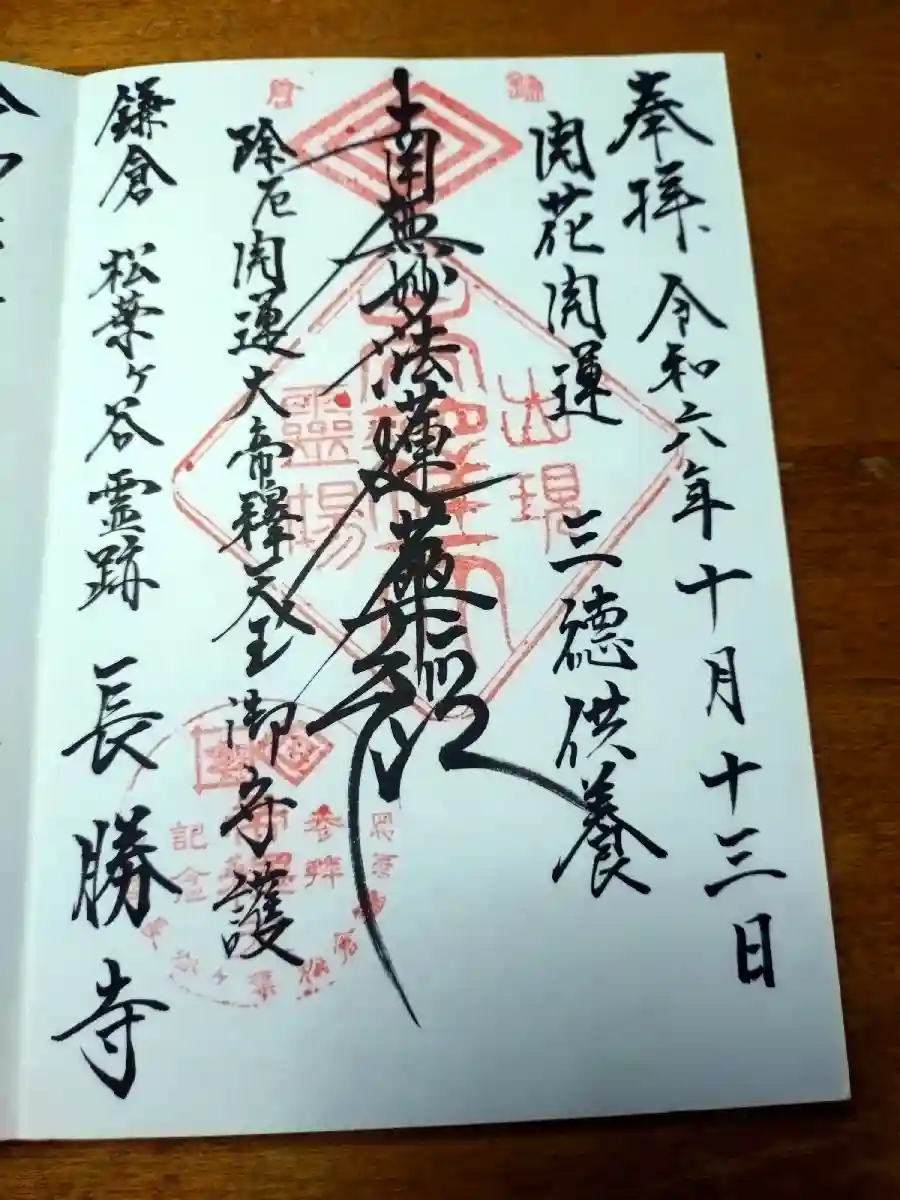 奉拝 令和六年十月十三日
開花開運 三徳供養
南無妙法蓮華経
除厄開運大帝釋天王御守護
鎌倉 松葉ヶ谷霊跡 長勝寺
出現
靈場
参拜
記念